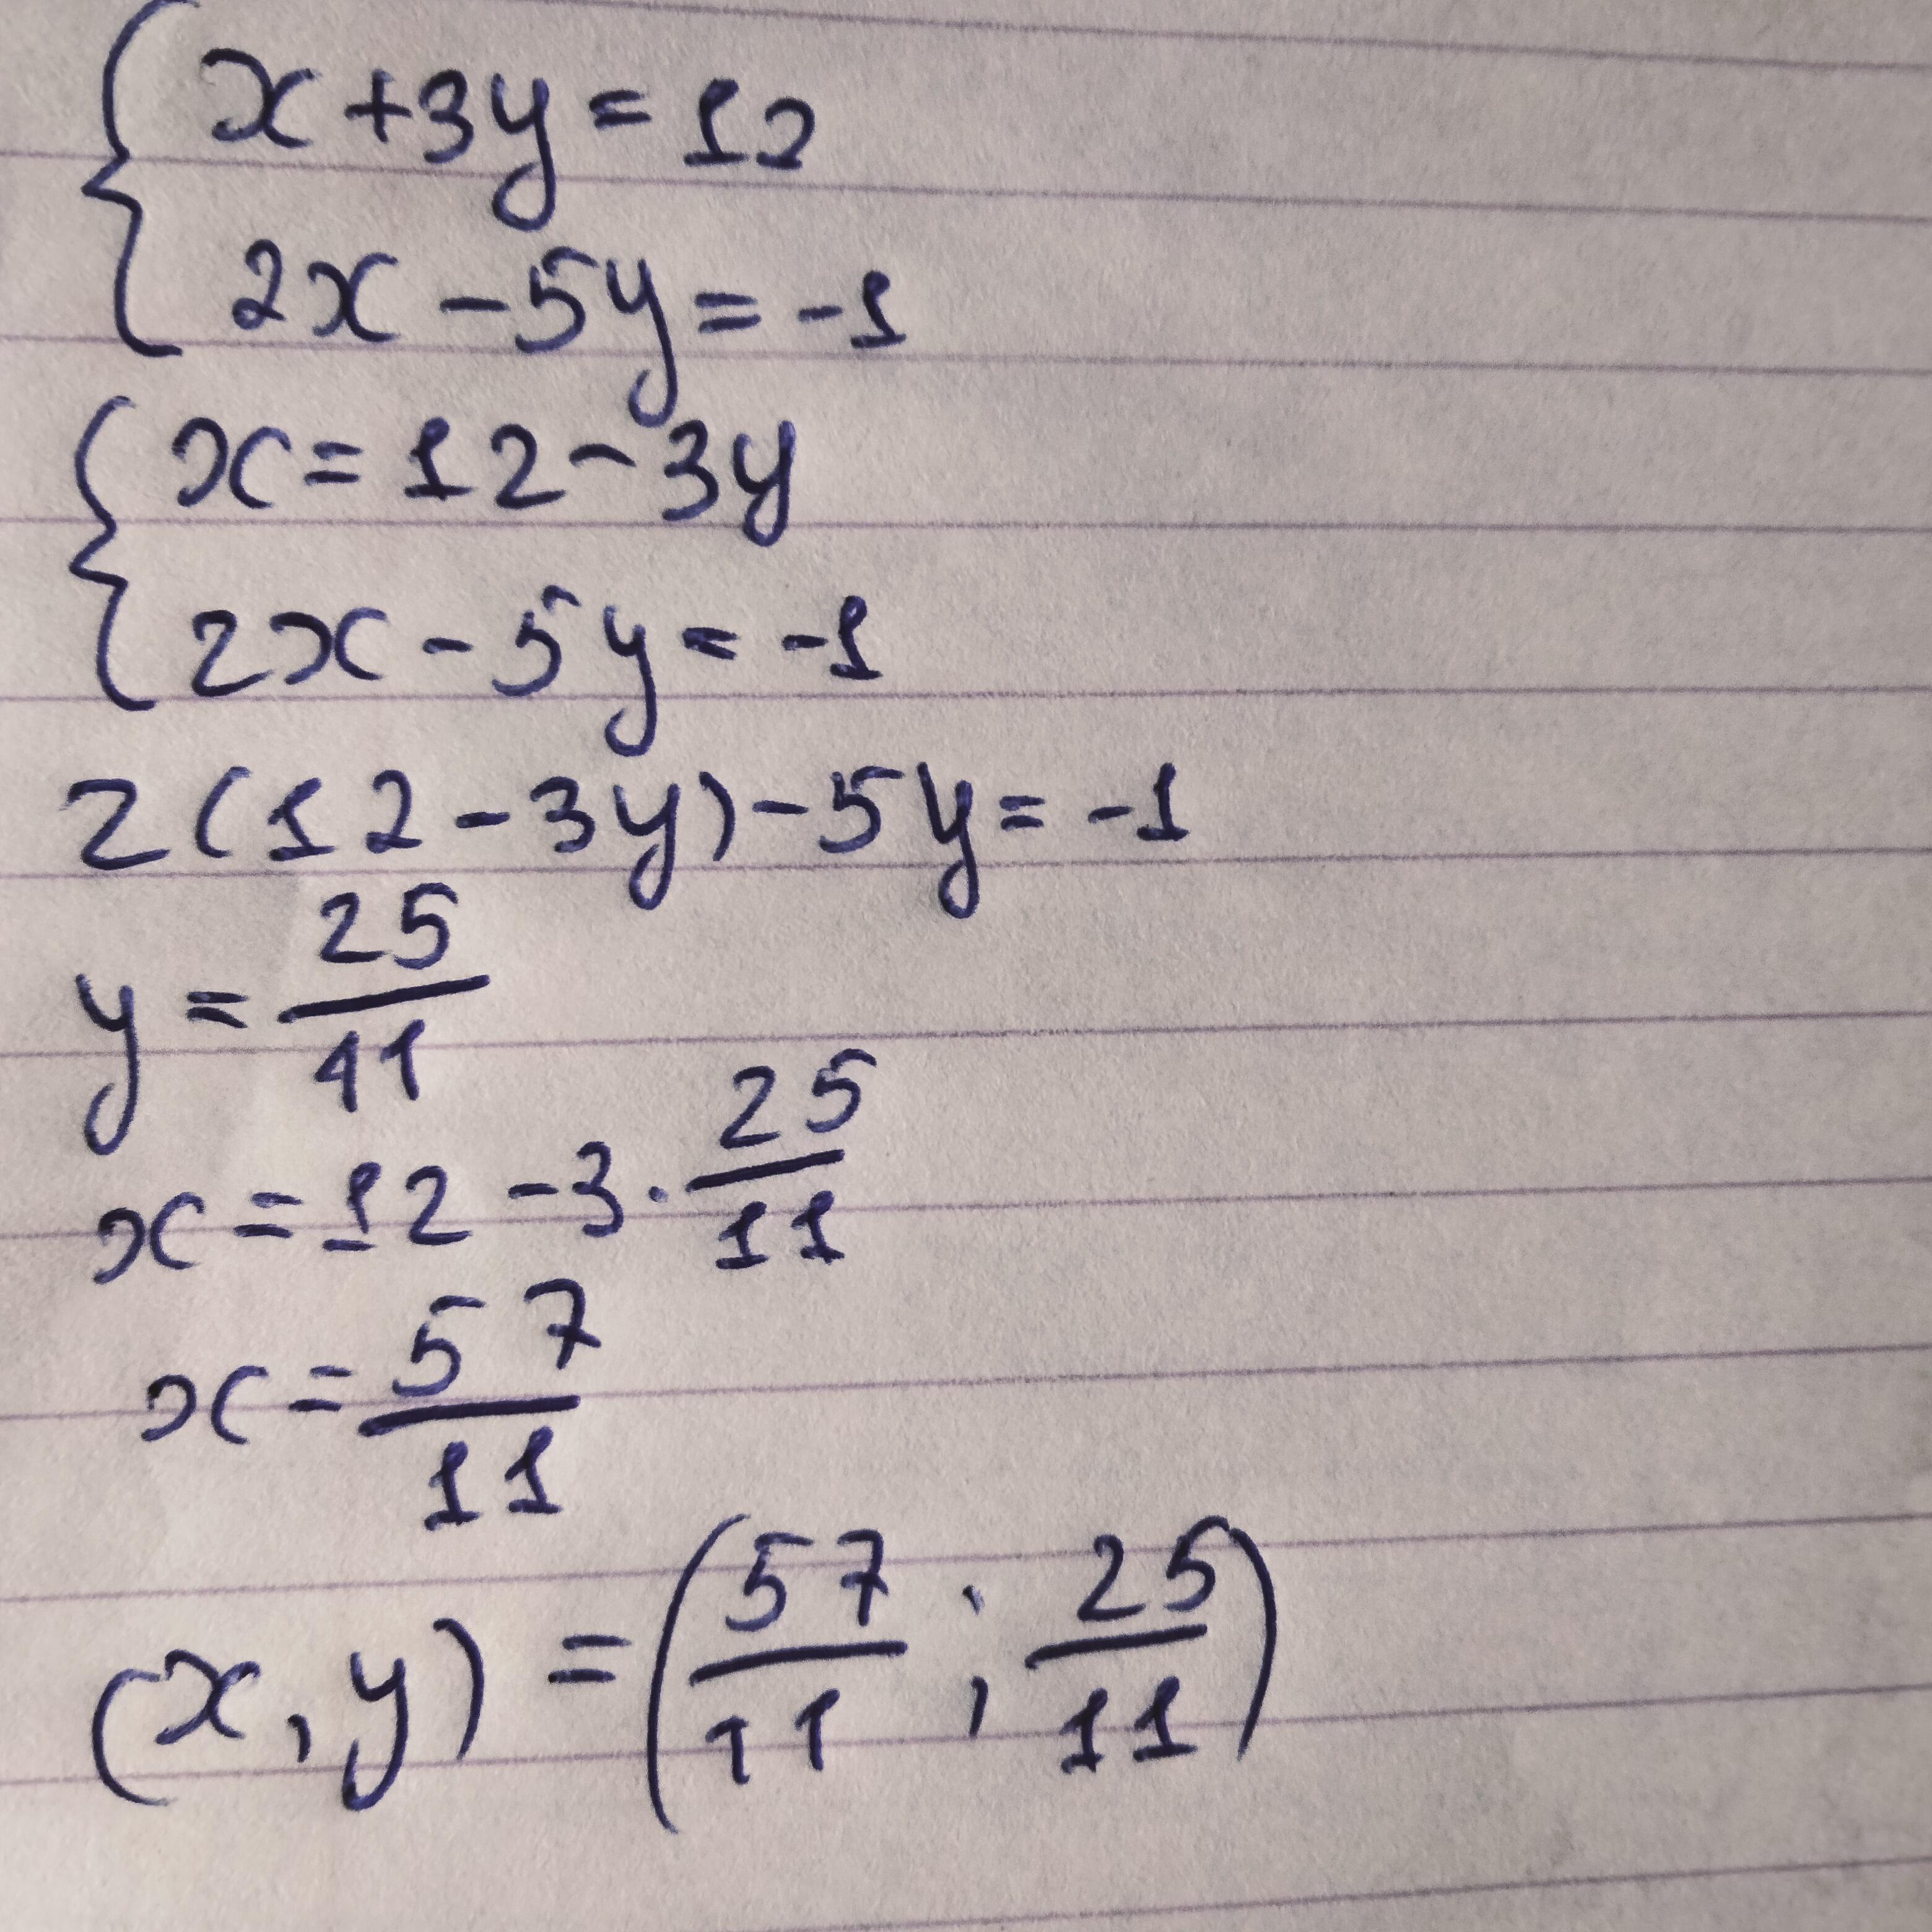 { x + 3y = 12
2x - 5y = -1
{ x = 12 - 3y
2x - 5y = -1
2(12 - 3y) - 5y = -1
y = 25/11
x = 12 - 3 · 25/11
x = 57/11
(x, y) = (57/11 ; 25/11)